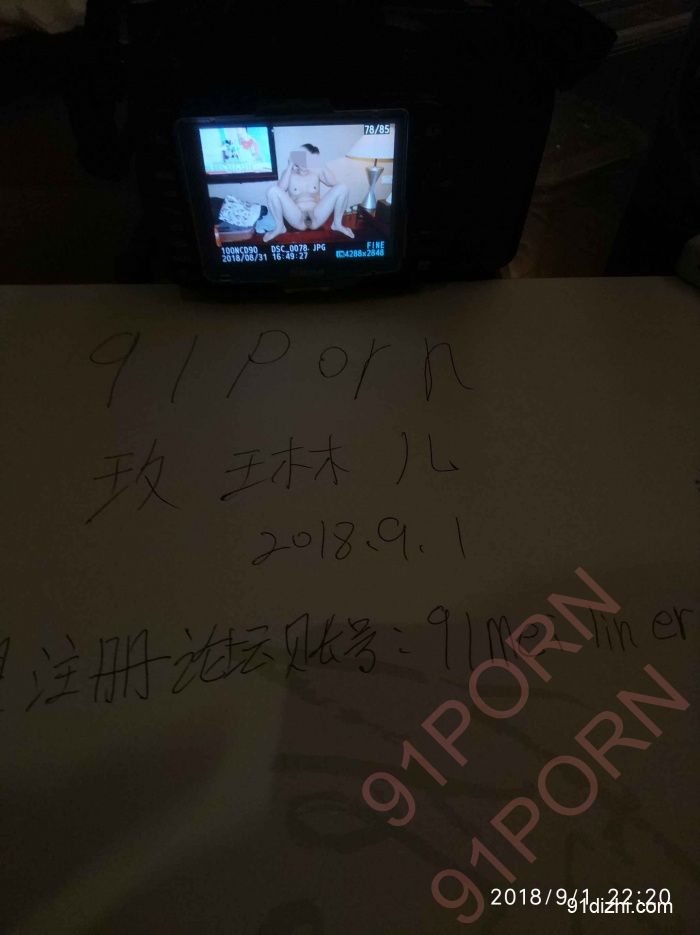 78/85
100NCD90 DSC_0078.JPG FINE
2018/08/31 16:49:27 L4288x2848
91Porn
玫琳儿
2018.9.1
注册论坛账号:91meiliner
91PORN
91PORN
2018/9/1 22:20
91dizhi.com